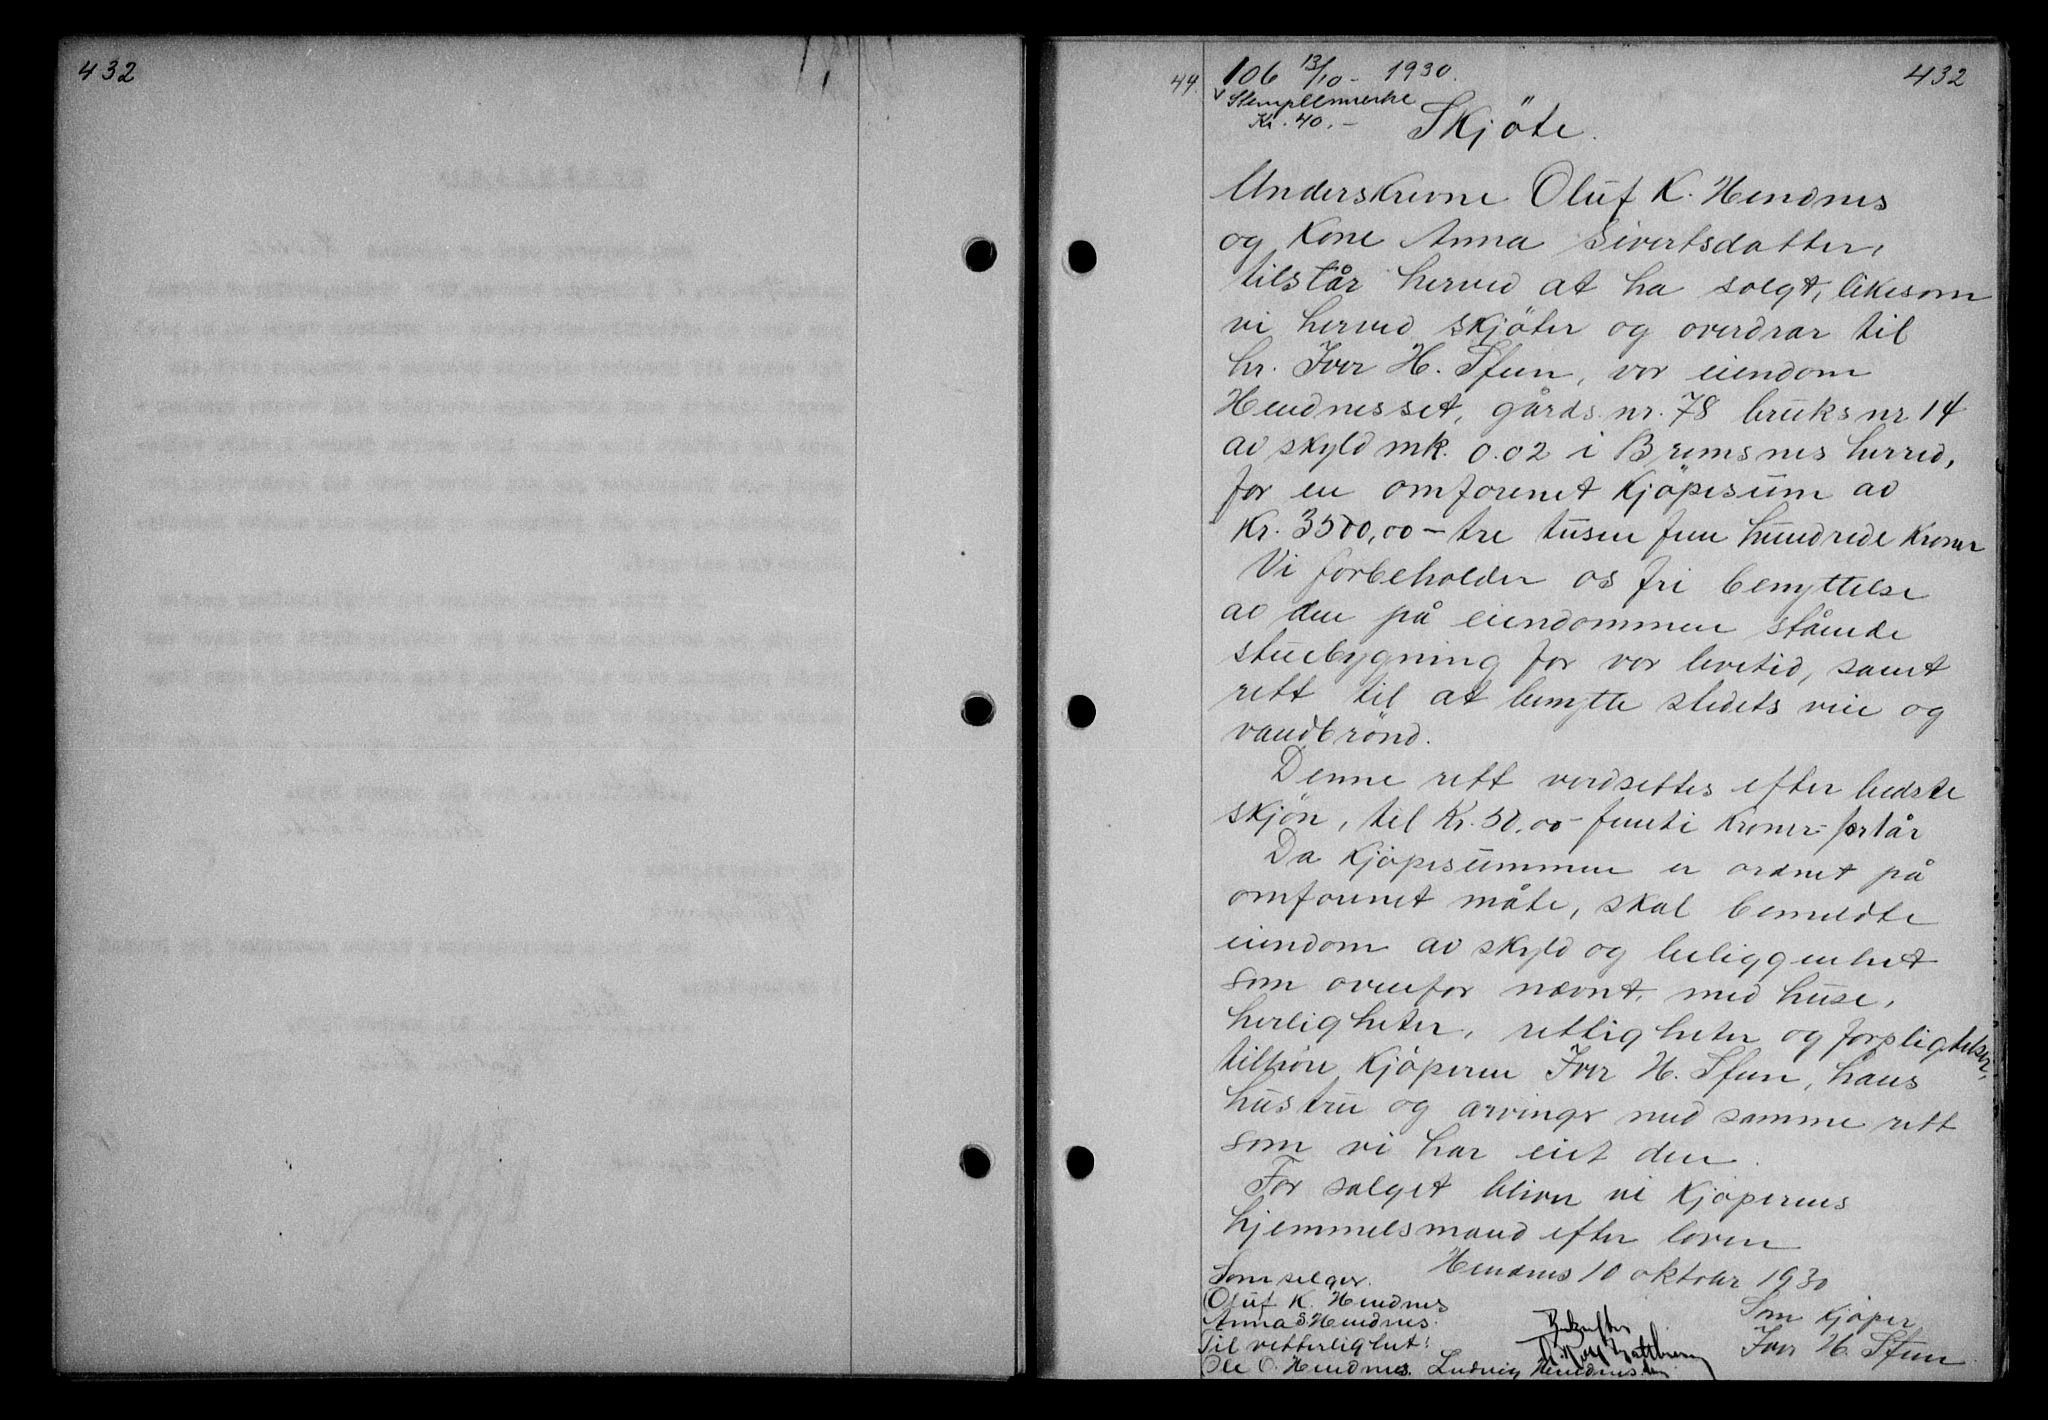 432
44. 106 13/10 - 1930. 432
Stempelmerke
Kr. 40.-
Skjöte.
Underskrevne Oluf K. Hendnes
og kone Anna Sivertsdatter,
tilstår herved at ha solgt, likesom
vi herved skjöter og overdrar til
hr. Iver H. Stein, vor eiendom
Hendnesset, gårds nr. 78 bruks nr 14
av skyld mk. 0.02 i Bremsnes herred,
for en omforenet kjöpesum av
Kr. 3500,00 - tre tusen fem hundrede kroner
Vi forbeholder os fri benyttelse
av den på eiendommen stående
stuebygning for vor levetid, samt
rett til at benytte stedets veie og
vandbrönd.
Denne rett verdsettes efter bedste
skjön, til Kr. 50,00 - femti kroner - for 1 år
Da kjöpesummen er ordnet på
omforenet måte, skal bemeldte
eiendom av skyld og beliggenhet
som ovenfor nævnt, med huse,
herligheter, rettigheter og forpligtelser,
tilhöre kjöperen Iver H. Stein, hans
hustru og arvinger med samme rett
som vi har eiet den.
For salget bliver vi kjöperens
hjemmelsmand efter loven
Hendnes 10 oktober 1930
Som selger.
Oluf K. Hendnes
Anna S Hendnes.
Som kjöper
Iver H. Stein
Til vetterlighet:
Bekreftes
Ole O. Hendnes. Ludvig Hendnes.